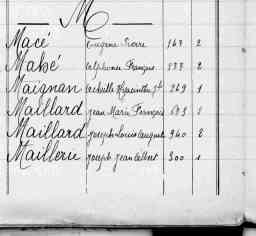 M
Macé Eugène Pierre 143 2
Mahé Alphonse François 533 2
Maignan Achille Hyacinthe 249 1
Maillard Jean Marie François 1
Maillard Joseph Louis Auguste 940 2
Mailleru Joseph Jean Albert 300 1